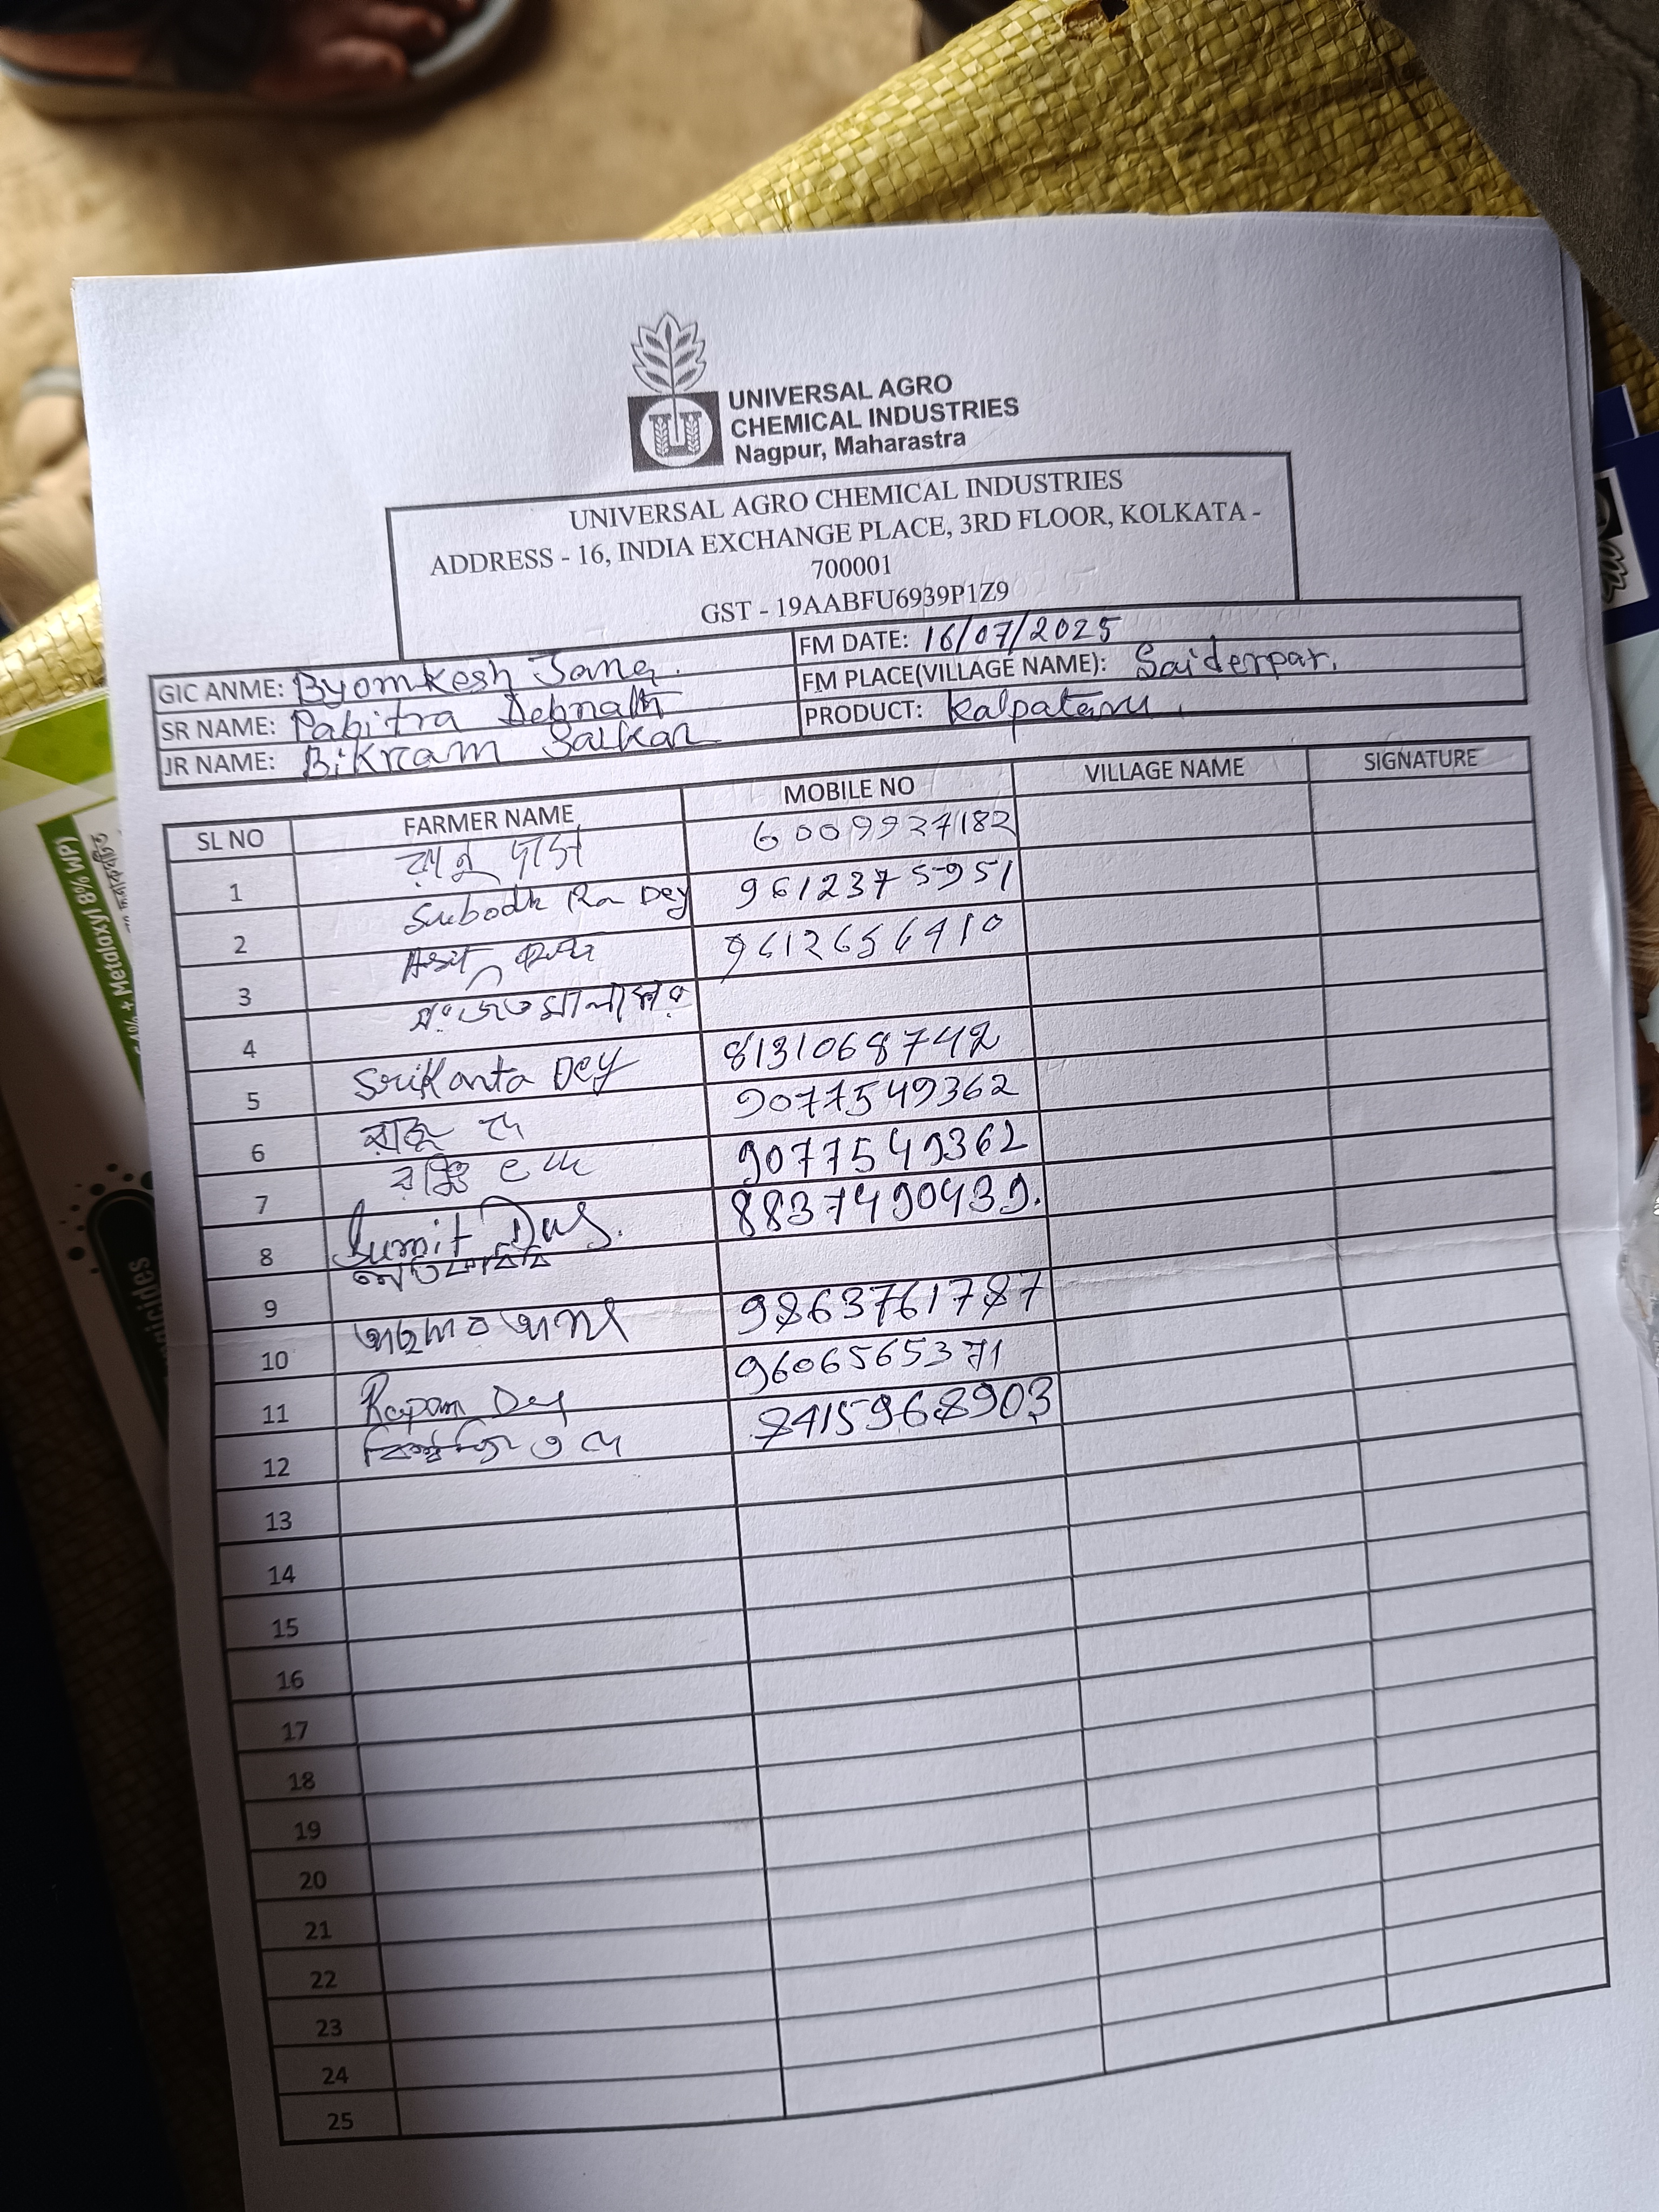 UNIVERSAL AGRO
CHEMICAL INDUSTRIES
Nagpur, Maharastra
UNIVERSAL AGRO CHEMICAL INDUSTRIES
ADDRESS - 16, INDIA EXCHANGE PLACE, 3RD FLOOR, KOLKATA -
700001
GST - 19AABFU6939P1Z9
GIC ANME: Byomkesh Jana. FM DATE: 16/07/2025
SR NAME: Pabitra Debnath FM PLACE(VILLAGE NAME): Saiderpar.
JR NAME: Bikram Sarkar PRODUCT: Kalpataru.
SL NO FARMER NAME MOBILE NO VILLAGE NAME SIGNATURE
1 রানু দাস 6009927182
2 Subodh Ra Dey 9612375951
3 9612656410
4
5 Srikanta Dey 8131068742
6 রাজু দে 9077549362
7 দে 9077549362
8 Sumit Das. 8837490439.
9
10 9863761787
11 Rapan Dey 9606565371
12 8415968903
13
14
15
16
17
18
19
20
21
22
23
24
25
+ Metalaxyl 8% WP)